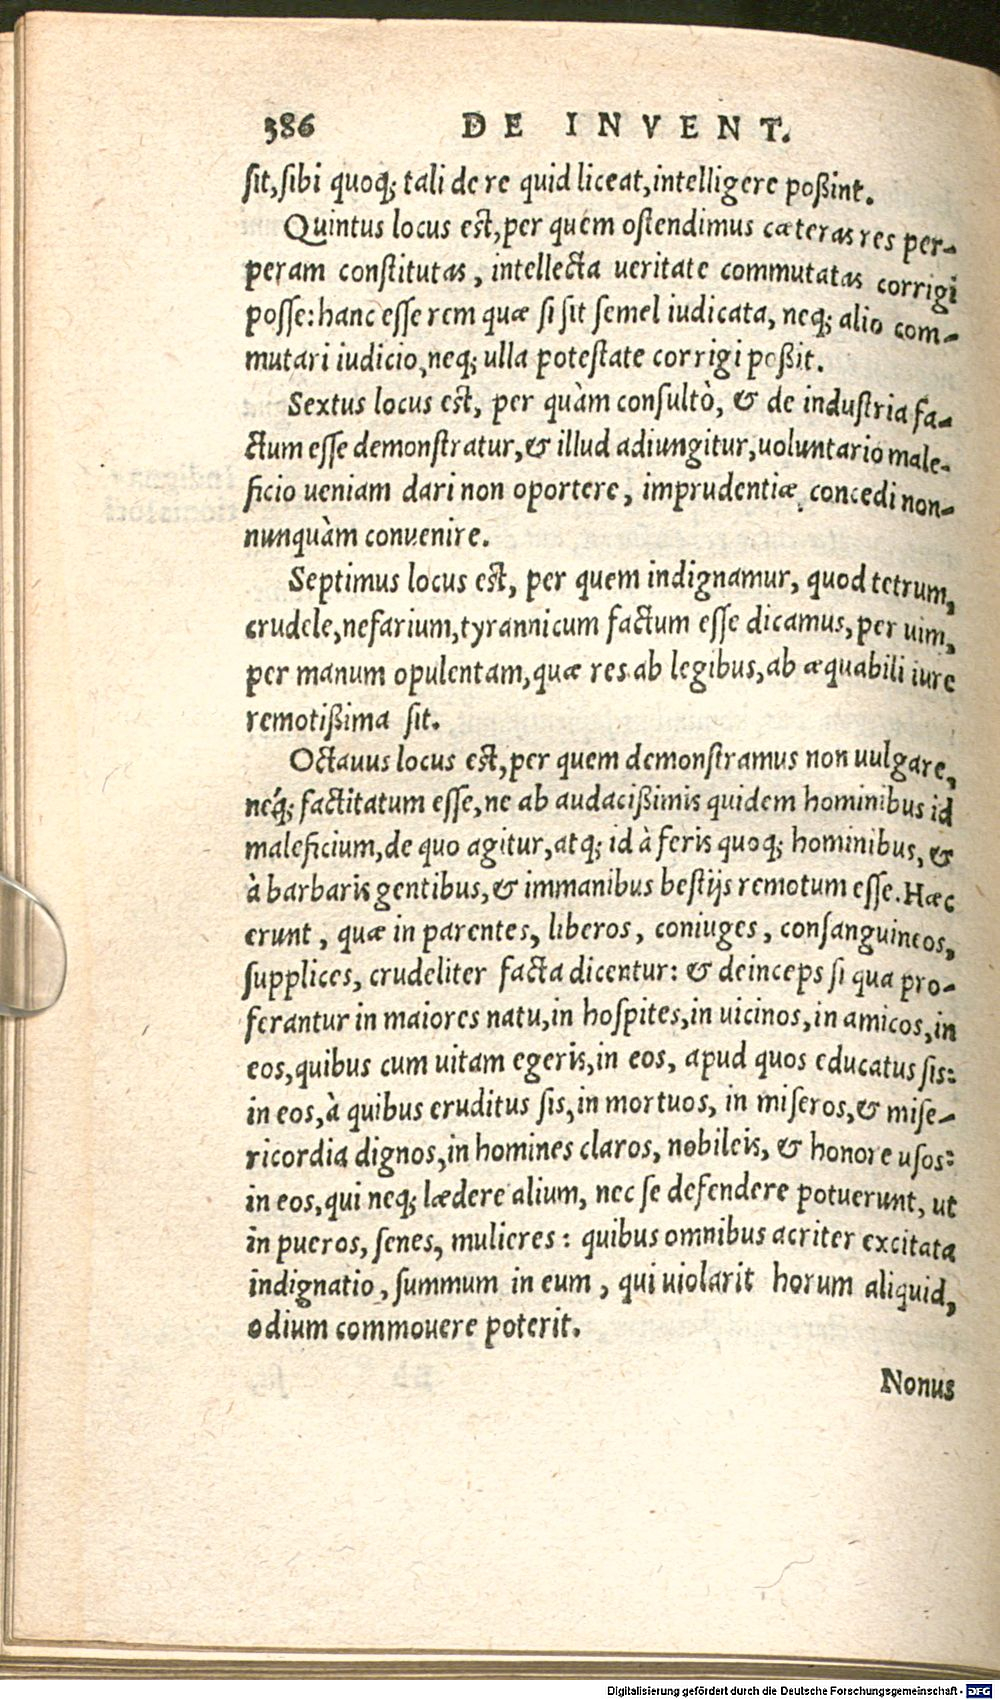 386 DE INVENT.
ſit, ſibi quoq; tali de re quid liceat, intelligere poßint.
Quintus locus est, per quem oſtendimus cæteras res per-
peram conſtitutas, intellecta ueritate commutatas corrigi
poſſe: hanc eſſe rem quæ ſi ſit ſemel iudicata, neq; alio com-
mutari iudicio, neq; ulla poteſtate corrigi poßit.
Sextus locus est, per quàm conſultò, & de induſtria fa-
ctum eſſe demonſtratur, & illud adiungitur, uoluntario male-
ficio ueniam dari non oportere, imprudentiæ, concedi non-
nunquàm conuenire.
Septimus locus est, per quem indignamur, quod tetrum,
crudele, nefarium, tyrannicum factum eſſe dicamus, per uim,
per manum opulentam, quæ res ab legibus, ab æquabili iure
remotißima ſit.
Octauus locus est, per quem demonſtramus non uulgare,
neq́; factitatum eſſe, ne ab audacißimis quidem hominibus id
maleficium, de quo agitur, atq; id à feris quoq; hominibus, &
à barbaris gentibus, & immanibus beſtijs remotum eſſe. Hæc
erunt, quæ in parentes, liberos, coniuges, conſanguineos,
ſupplices, crudeliter facta dicentur: & deinceps ſi qua pro-
ferantur in maiores natu, in hoſpites, in uicinos, in amicos, in
eos, quibus cum uitam egeris, in eos, apud quos educatus ſis:
in eos, à quibus eruditus ſis, in mortuos, in miſeros, & miſe-
ricordia dignos, in homines claros, nobileis, & honore uſos:
in eos, qui neq; lædere alium, nec ſe defendere potuerunt, ut
in pueros, ſenes, mulieres: quibus omnibus acriter excitata
indignatio, ſummum in eum, qui uiolarit horum aliquid,
odium commouere poterit.
Nonus
Digitalisierung gefördert durch die Deutsche Forschungsgemeinschaft - DFG